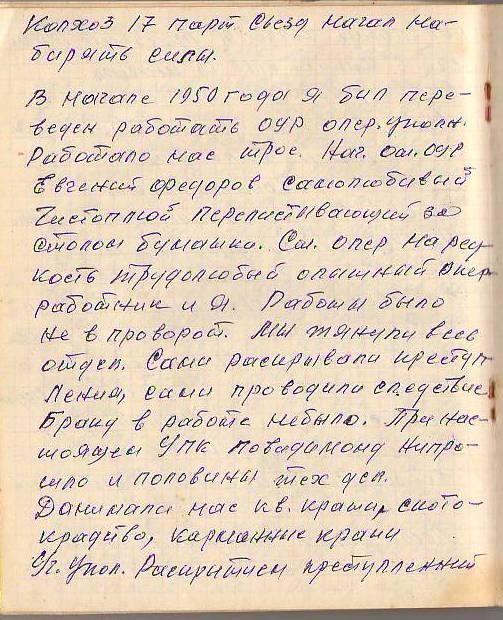 Колхоз 17 парт съезд начал на-
бирять силы.
В начале 1950 года я был пере-
веден работать ОУР опер. уполн.
Работало нас трое. Нач. отд. ОУР
Евгений Федоров самолюбивый
чистоплюй перелистывающий за
столом бумашки. Ст. опер на ред
кость трудолюбый опытный опер
работник и я. Работы было
не в проворот. Мы тянули весь
отдел. Сами раскрывали преступ
ления, сами проводили следствие
Бранд в работе небыло. При нас-
тоящем УПК повидимому нипро-
шло и половины тех дел.
Донимали нас кв. кражи, ското-
крадство, карманные кражи
Уг. Упол. Раскрытием преступлений